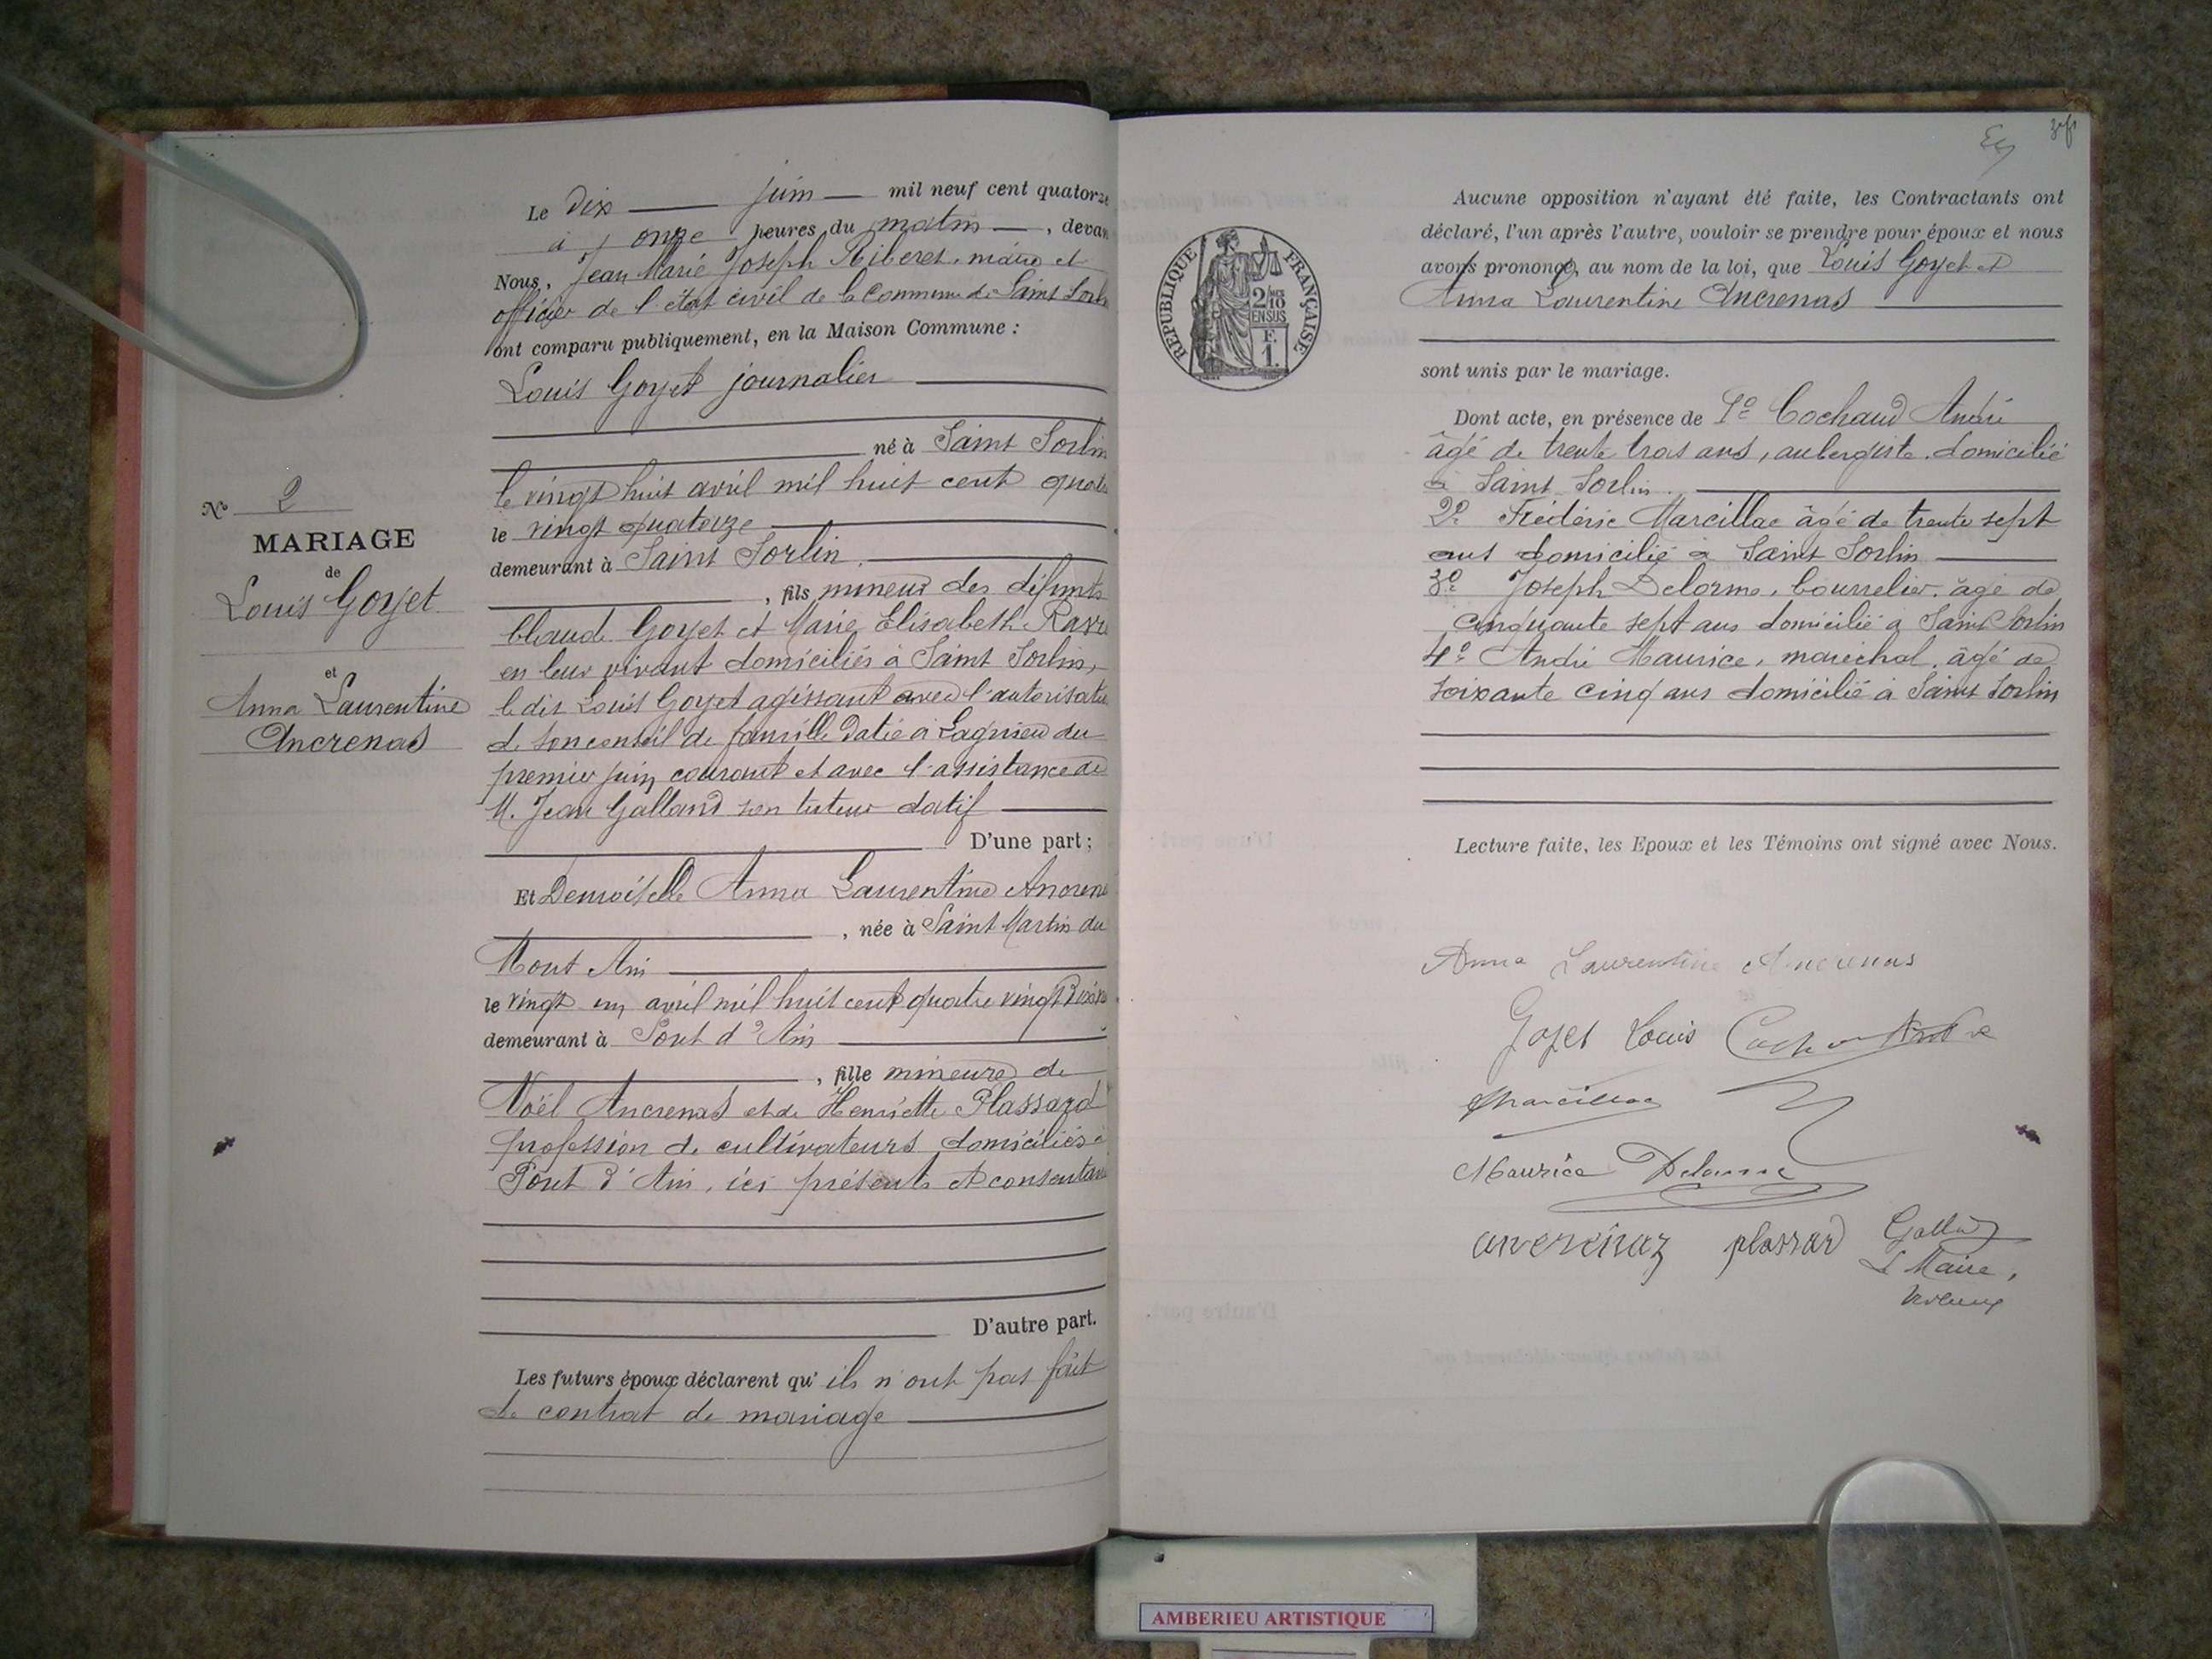 Le dix juin mil neuf cent quatorze
à onze heures du matin, devan
Nous, Jean Marie Joseph Riberet, maire et
officier de l'état civil de la Commune de Saint Sorlin
ont comparu publiquement, en la Maison Commune :
Louis Goyet journalier
né à Saint Sorlin
le vingt huit avril mil huit cent quatre
le vingt quatorze
demeurant à Saint Sorlin.
, fils mineur des défunts
Claude Goyet et Marie Elisabeth Ravi
en leur vivant domiciliés à Saint Sorlin,
le dit Louis Goyet agissant avec l'autorisatio
de son conseil de famille Datié à Lagnieu du
premier juin courant et avec l'assistance de
M. Jean Galland son tuteur datif
D'une part ;
Et Demoiselle Anna Laurentine Ancrena
, née à Saint Martin du
Mont Ain
le vingt un avril mil huit cent quatre vingt
demeurant à Pont d'Ain
, fille mineure de
Noël Ancrenas et de Henriette Plassard
profession de cultivateurs domiciliés à
Pont d'Ain, ici présents et consentan
D'autre part.
Les futurs époux déclarent qu'ils n'ont pas fait
de contrat de mariage
No 2
MARIAGE
de
Louis Goyet
et
Anna Laurentine
Ancrenas
RÉPUBLIQUE FRANÇAISE
2/10
EN SUS
F.
1.
Aucune opposition n'ayant été faite, les Contractants ont
déclaré, l'un après l'autre, vouloir se prendre pour époux et nous
avons prononcé, au nom de la loi, que Louis Goyet et
Anna Laurentine Ancrenas
sont unis par le mariage.
Dont acte, en présence de 1º Cochaud André
âgé de trente trois ans, aubergiste domicilié
à Saint Sorlin.
2º Frédéric Marcillac âgé de trente sept
ans domicilié à Saint Sorlin
3º Joseph Delorme, bourrelier, âgé de
cinquante sept ans domicilié à Saint Sorlin
4º André Maurice, maréchal, âgé de
soixante cinq ans domicilié à Saint Sorlin
Lecture faite, les Epoux et les Témoins ont signé avec Nous.
Anna Laurentine Ancrenas
Goyet Louis
Marcillac
Maurice Delorme
ancrenaz plassard
Le Maire,
AMBERIEU ARTISTIQUE